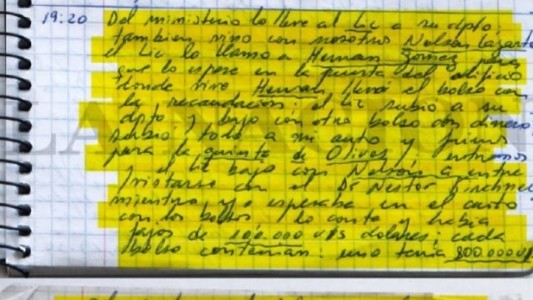 19:20 Del ministerio lo lleve al Lic a su dpto;
tambien vino con nosotros Nelson Lazarte
el Lic lo llamo a Hernan Gomez para
que lo espere en la puerta del edificio
donde vive Hernan, llevó el bolso con
la recaudacion; el Lic subio a su
dpto y bajo con otro bolso con dinero
subio todo a mi auto y fuimos
para la quinta de Olivos, entramos
y el Lic bajo con Nelson a entre
vistarse con el Dr Nestor
mientras yo esperaba en el auto
con los bolsos, lo conte y habia
fajos de 100.000 U$S dolares; cada
bolso contenian: uno tenia 800.000 U$
LA NACION